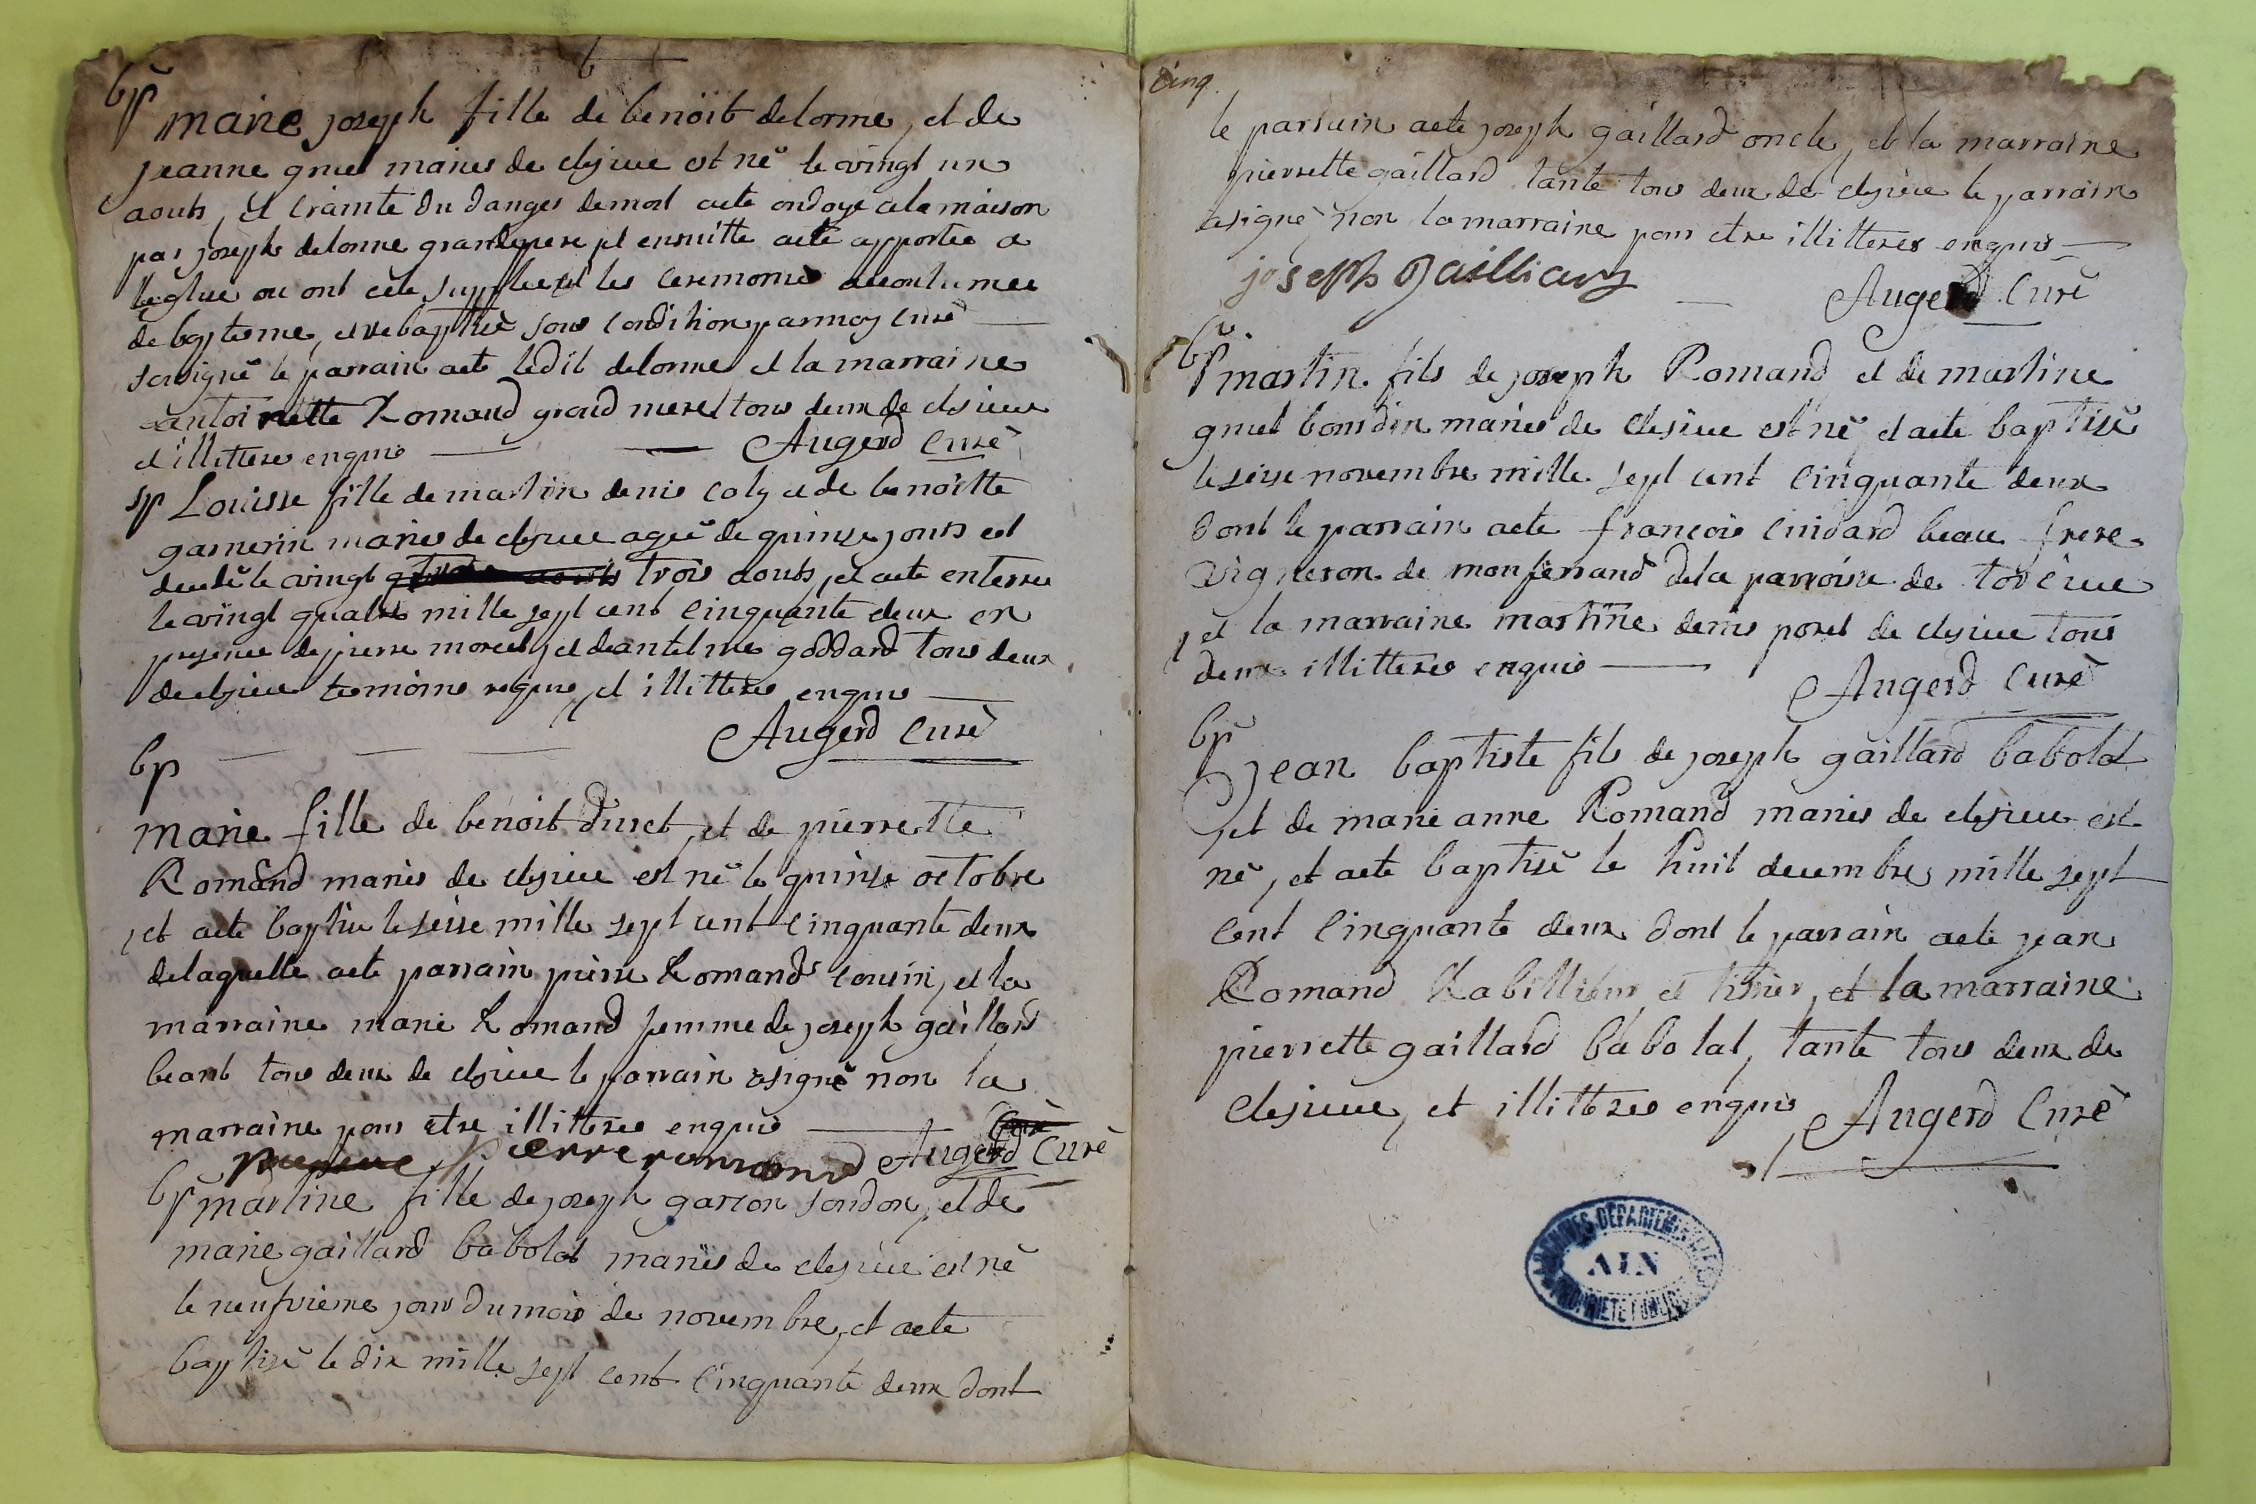 bp
marie joseph fille de benoît delorme, et de
jeanne gruel maries de cleyzieu est né le vingt un
aouts, et crainte du danger de mort aeté ondoyé a la maison
par joseph delorme grand pere, et ensuitte aeté apportée a
leglise ou ont eté supplées les ceremonies accoutumees
de bapteme, et rebaptisé sous condition par moy curé
sousigné le parrain aeté ledit delorme et la marraine
antoinette Romand grand mere, tous deux de cleyzieu
et illitteres enquis Augerd curé
sp Louisse fille de martin denis coly et de benoitte
garnerin maries de cleyzieu ageé de quinze jours est
decedé le vingt trois aouts, et aeté enterreé
le vingt quatre mille sept cent cinquante deux en
presence de pierre morel, et de antelme goddard tous deux
de cleyzieu temoins requis, et illitteres enquis
Augerd curé
bp
marie fille de benoit duret, et de pierrette
Romand mariés de cleyzieu est né le quinze octobre
, et aeté baptisé le seize mille sept cent cinquante deux
de laquelle aeté parrain pierre Romand cousin, et la
marraine marie Romand femme de joseph gaillard
beant tous deux de cleyzieu le parrain asigné non la
marraine pour etre illitteres enquis
pierre romand Augerd Curé
bp martine fille de joseph garzon sondon, et de
marie gaillard babolat mariés de cleyzieu est né
le neufvieme jour du mois de novembre, et aeté
baptisé le dix mille sept cent cinquante deux dont
cinq
le parrain aeté joseph gaillard oncle, et la marraine
pierrette gaillard tante tous deux de cleyzieu le parrain
asigné non la marraine pour etre illitteres enquis
joseph gailliard
Augerd Curé
bp
martin fils de joseph Romand et de martine
gruel bourdin mariés de cleyzieu est né et aeté baptisé
le seize novembre mille sept cent cinquante deux
dont le parrain aeté françois cuidard beau frere
vigneron de monferrand de la parroisse de torcieu
, et la marraine martine denis poret de cleyzieu tous
deux illitteres enquis
Augerd Curé
bp
jean baptiste fils de joseph gaillard babolat
, et de marie anne Romand mariés de cleyzieu est
né, et aeté baptisé le huit decembre mille sept
cent cinquante deux dont le parrain aeté jean
Romand et, et la marraine
pierrette gaillard babolat, tante tous deux de
cleyzieu, et illitteres enquis, Augerd Curé
ARCHIVES DEPARTEMENTALES
AIN
PROPRIETE PUBLIQUE